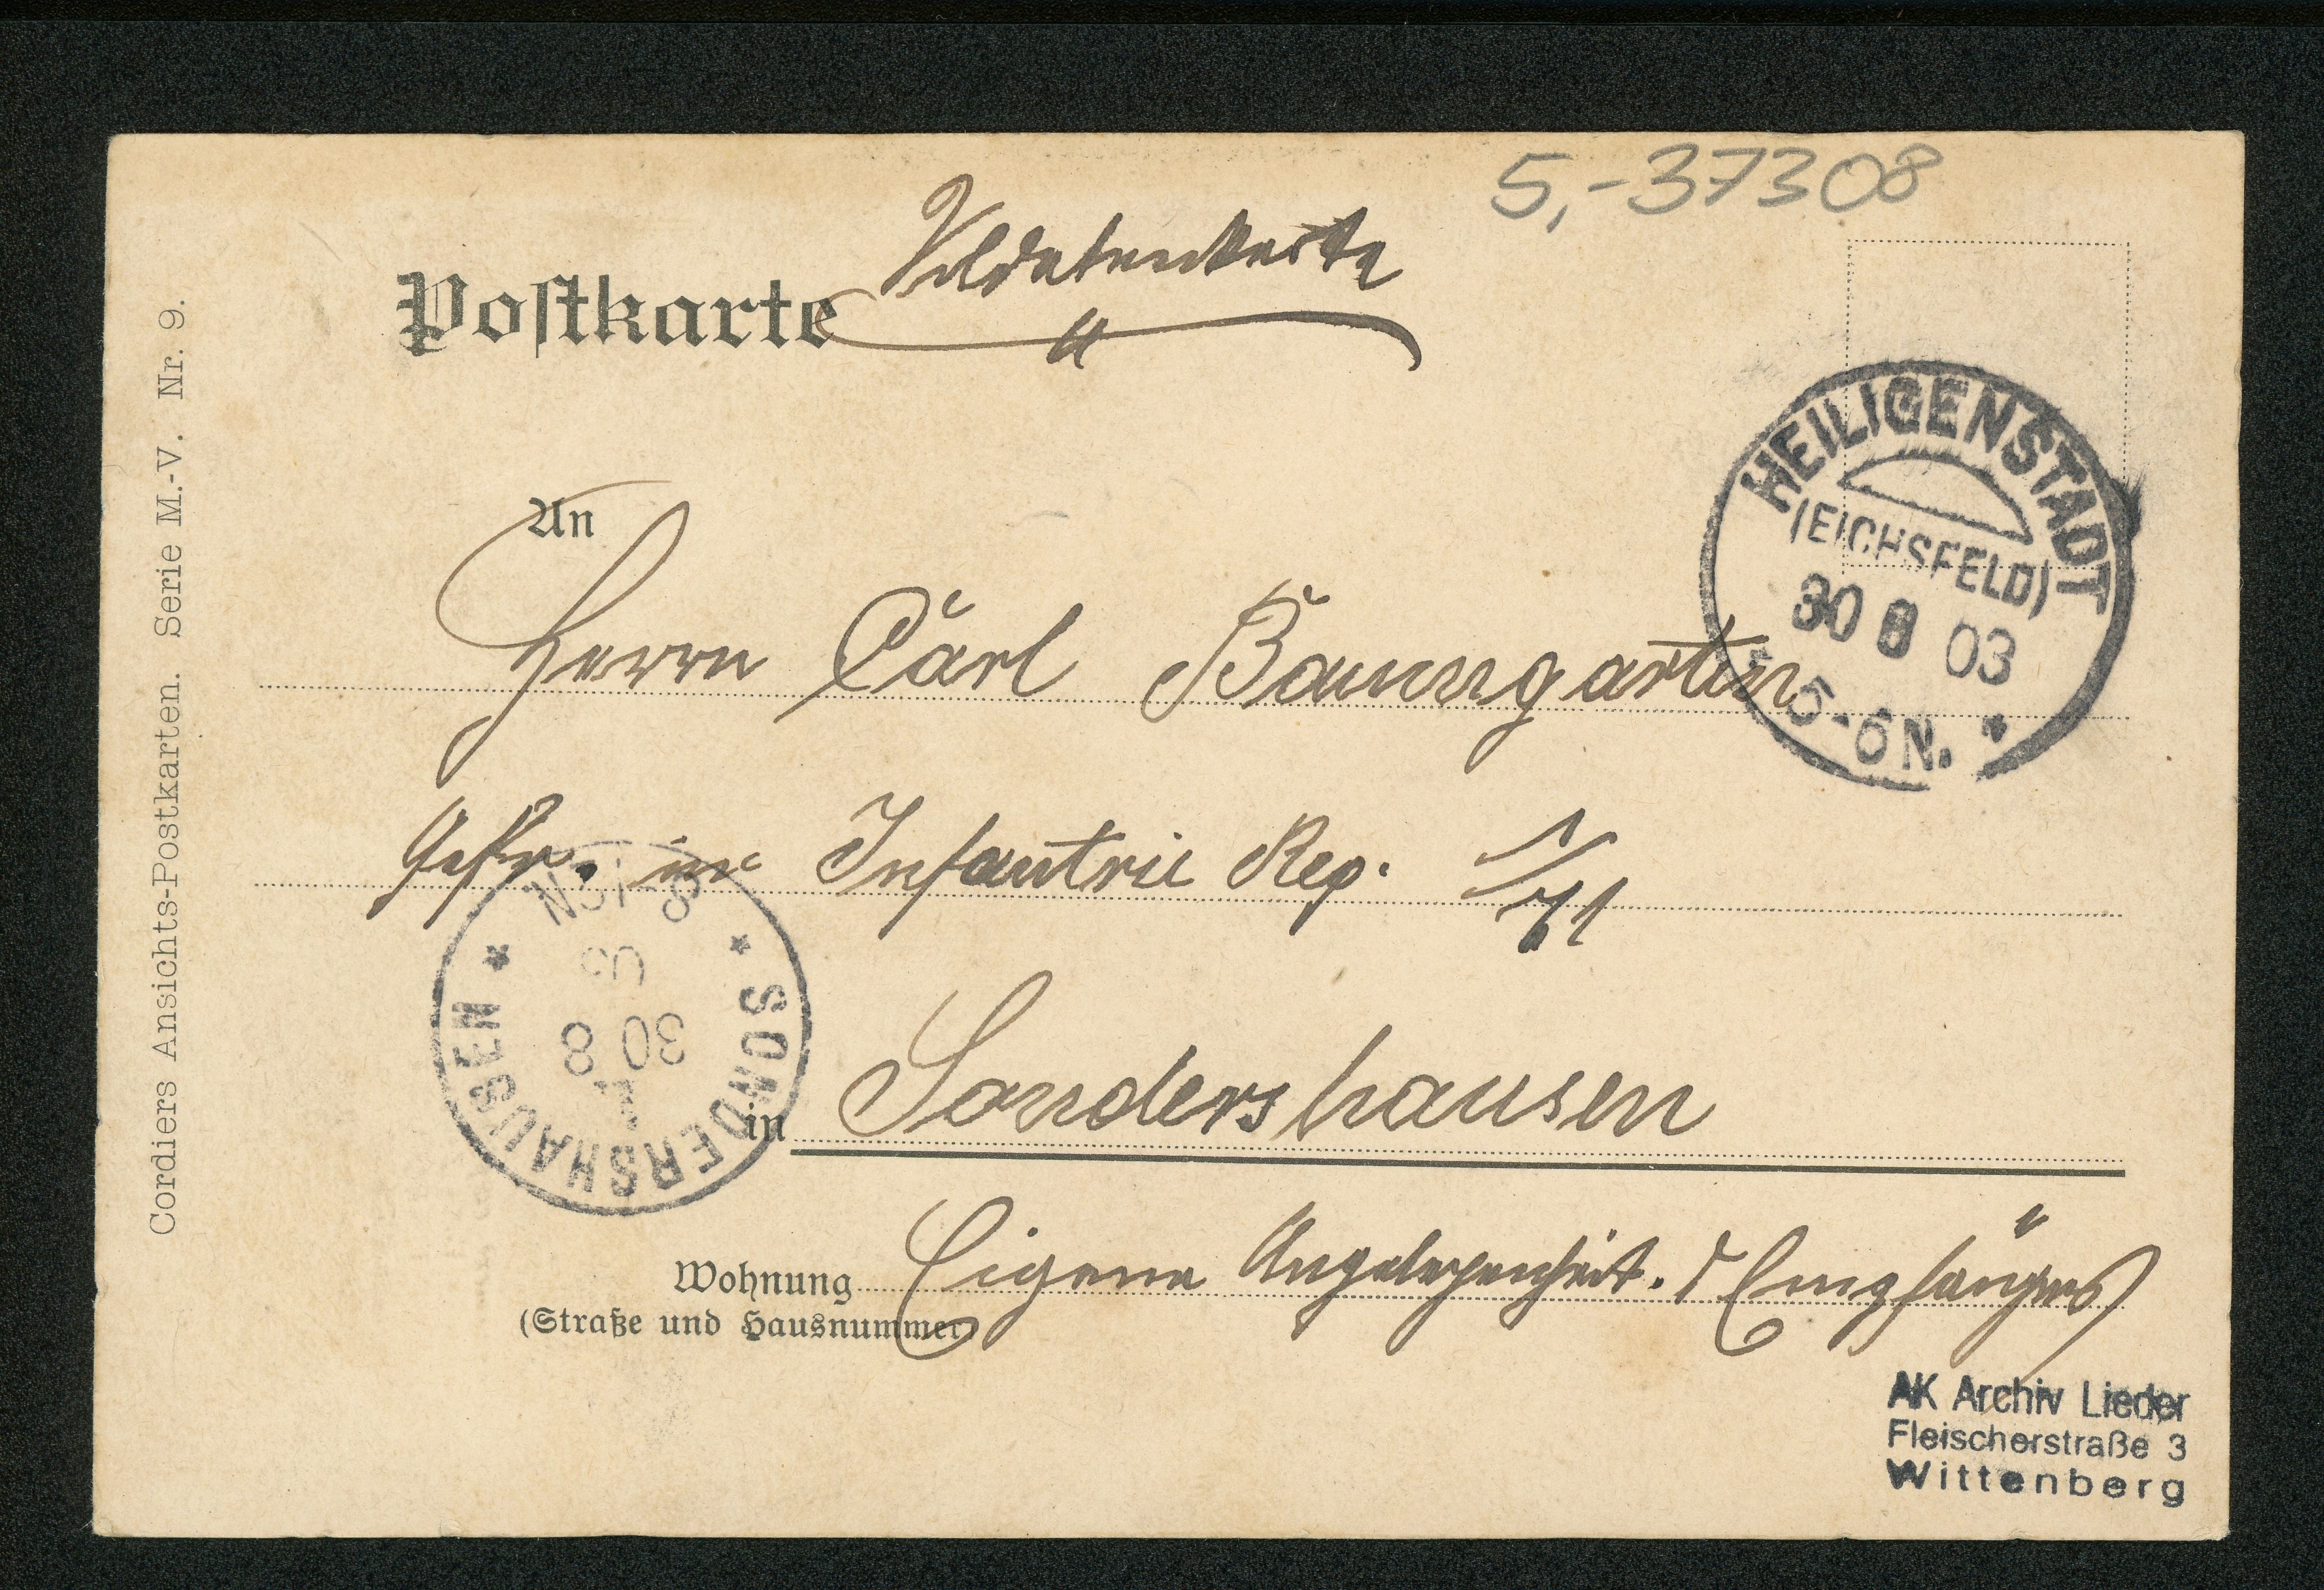 5,- 37308
Soldatenkarte
Postkarte
An
Herrn Carl Baumgarten
Gefr. im Infantrie Reg. 1/71
in Sondershausen
Wohnung Eigene Angelegenheit. d Empfängers
(Straße und Hausnummer)
HEILIGENSTADT
(EICHSFELD)
30 8 03
5-6N.
SONDERSHAUSEN
30 8
03
8-9N
Cordiers Ansichts-Postkarten. Serie M.-V. Nr. 9.
AK Archiv Lieder
Fleischerstraße 3
Wittenberg